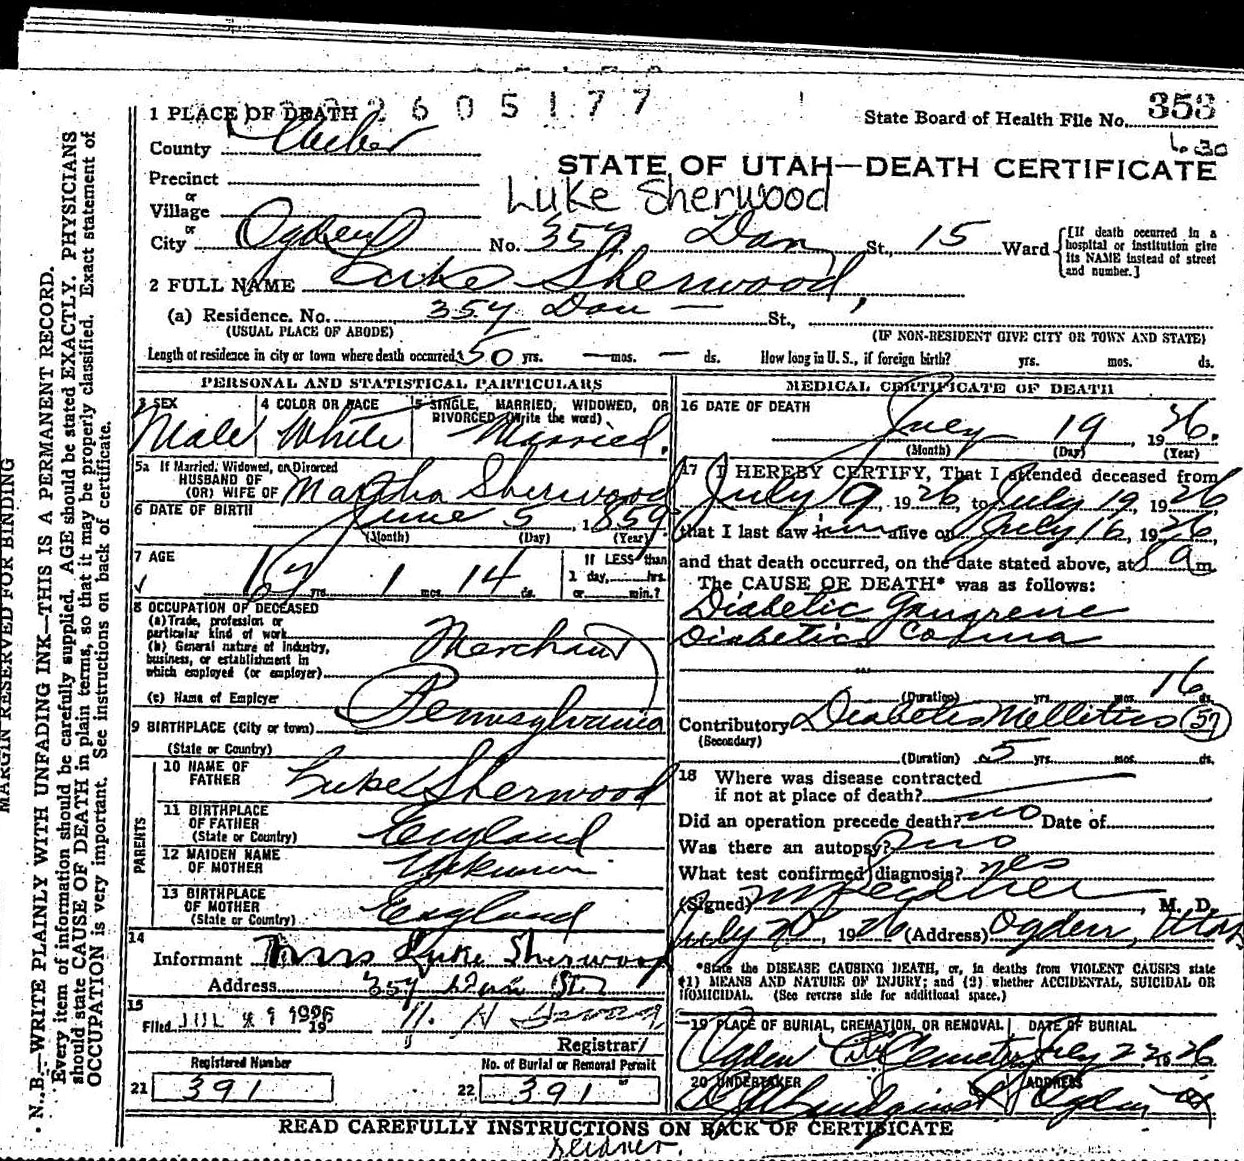 2605177
State Board of Health File No. 353
6 30
1 PLACE OF DEATH
County Weber
STATE OF UTAH—DEATH CERTIFICATE
Precinct
or
Luke Sherwood
Village
or
City Ogden No. 357 Dan St., 15 Ward [If death occurred in a hospital or institution give its NAME instead of street and number.]
2 FULL NAME Luke Sherwood,
(a) Residence. No. 357 Dan — St.,
(USUAL PLACE OF ABODE) (IF NON-RESIDENT GIVE CITY OR TOWN AND STATE)
Length of residence in city or town where death occurred 50 yrs. — mos. — ds. How long in U.S., if foreign birth? yrs. mos. ds.
PERSONAL AND STATISTICAL PARTICULARS
3 SEX 4 COLOR OR RACE 5 SINGLE, MARRIED, WIDOWED, OR DIVORCED (Write the word)
Male White Married.
5a If Married, Widowed, or Divorced
HUSBAND OF
(OR) WIFE OF Martha Sherwood
6 DATE OF BIRTH June 5, 1859
(Month) (Day) (Year)
7 AGE 67 yrs. 1 mos. 14 ds. If LESS than 1 day, hrs. or min.?
8 OCCUPATION OF DECEASED
(a) Trade, profession or
particular kind of work
(b) General nature of industry,
business, or establishment in
which employed (or employer)
Merchant
(c) Name of Employer
9 BIRTHPLACE (City or town) Pennsylvania
(State or Country)
PARENTS
10 NAME OF
FATHER Luke Sherwood
11 BIRTHPLACE
OF FATHER England
(State or Country)
12 MAIDEN NAME
OF MOTHER Unknown
13 BIRTHPLACE
OF MOTHER England
(State or Country)
14
Informant Mrs Luke Sherwood
Address 357 St
15
Filed JUL 1926 19
Registrar
Registered Number No. of Burial or Removal Permit
21 391 22 391
MEDICAL CERTIFICATE OF DEATH
16 DATE OF DEATH
July 19, 1926.
(Month) (Day) (Year)
17 I HEREBY CERTIFY, That I attended deceased from
July 9, 1926, to July 19, 1926
that I last saw him alive on July 16, 1926,
and that death occurred, on the date stated above, at 8 a m.
The CAUSE OF DEATH* was as follows:
Diabetic Gangrene
Diabetic Coma
(Duration) yrs. mos. 16 ds.
Contributory Diabetes Mellitus 57
(Secondary)
(Duration) 5 yrs. mos. ds.
18 Where was disease contracted
if not at place of death?
Did an operation precede death? no Date of
Was there an autopsy? no
What test confirmed diagnosis? yes
(Signed) , M. D.
July 20, 1926 (Address) Ogden, Utah
*State the DISEASE CAUSING DEATH, or, in deaths from VIOLENT CAUSES state
(1) MEANS AND NATURE OF INJURY; and (2) whether ACCIDENTAL, SUICIDAL OR
HOMICIDAL. (See reverse side for additional space.)
19 PLACE OF BURIAL, CREMATION, OR REMOVAL DATE OF BURIAL
Ogden City Cemetery July 22 1926
20 UNDERTAKER ADDRESS
Ogden
READ CAREFULLY INSTRUCTIONS ON BACK OF CERTIFICATE
MARGIN RESERVED FOR BINDING
N. B.—WRITE PLAINLY WITH UNFADING INK—THIS IS A PERMANENT RECORD.
Every item of information should be carefully supplied. AGE should be stated EXACTLY. PHYSICIANS
should state CAUSE OF DEATH in plain terms, so that it may be properly classified. Exact statement of
OCCUPATION is very important. See instructions on back of certificate.